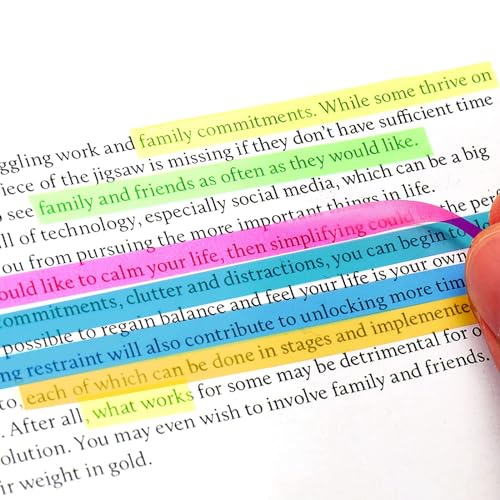 ggling work and family commitments. While some thrive on
piece of the jigsaw is missing if they don't have sufficient time
o see family and friends as often as they would like.
ll of technology, especially social media, which can be a big
you from pursuing the more important things in life.
ould like to calm your life, then simplifying could the per
ommitments, clutter and distractions, you can begin to
possible to regain balance and feel your life is your own
ng restraint will also contribute to unlocking more tim
to, each of which can be done in stages and implemente
. After all, what works for some may be detrimental for o
olution. You may even wish to involve family and friends.
ir weight in gold.